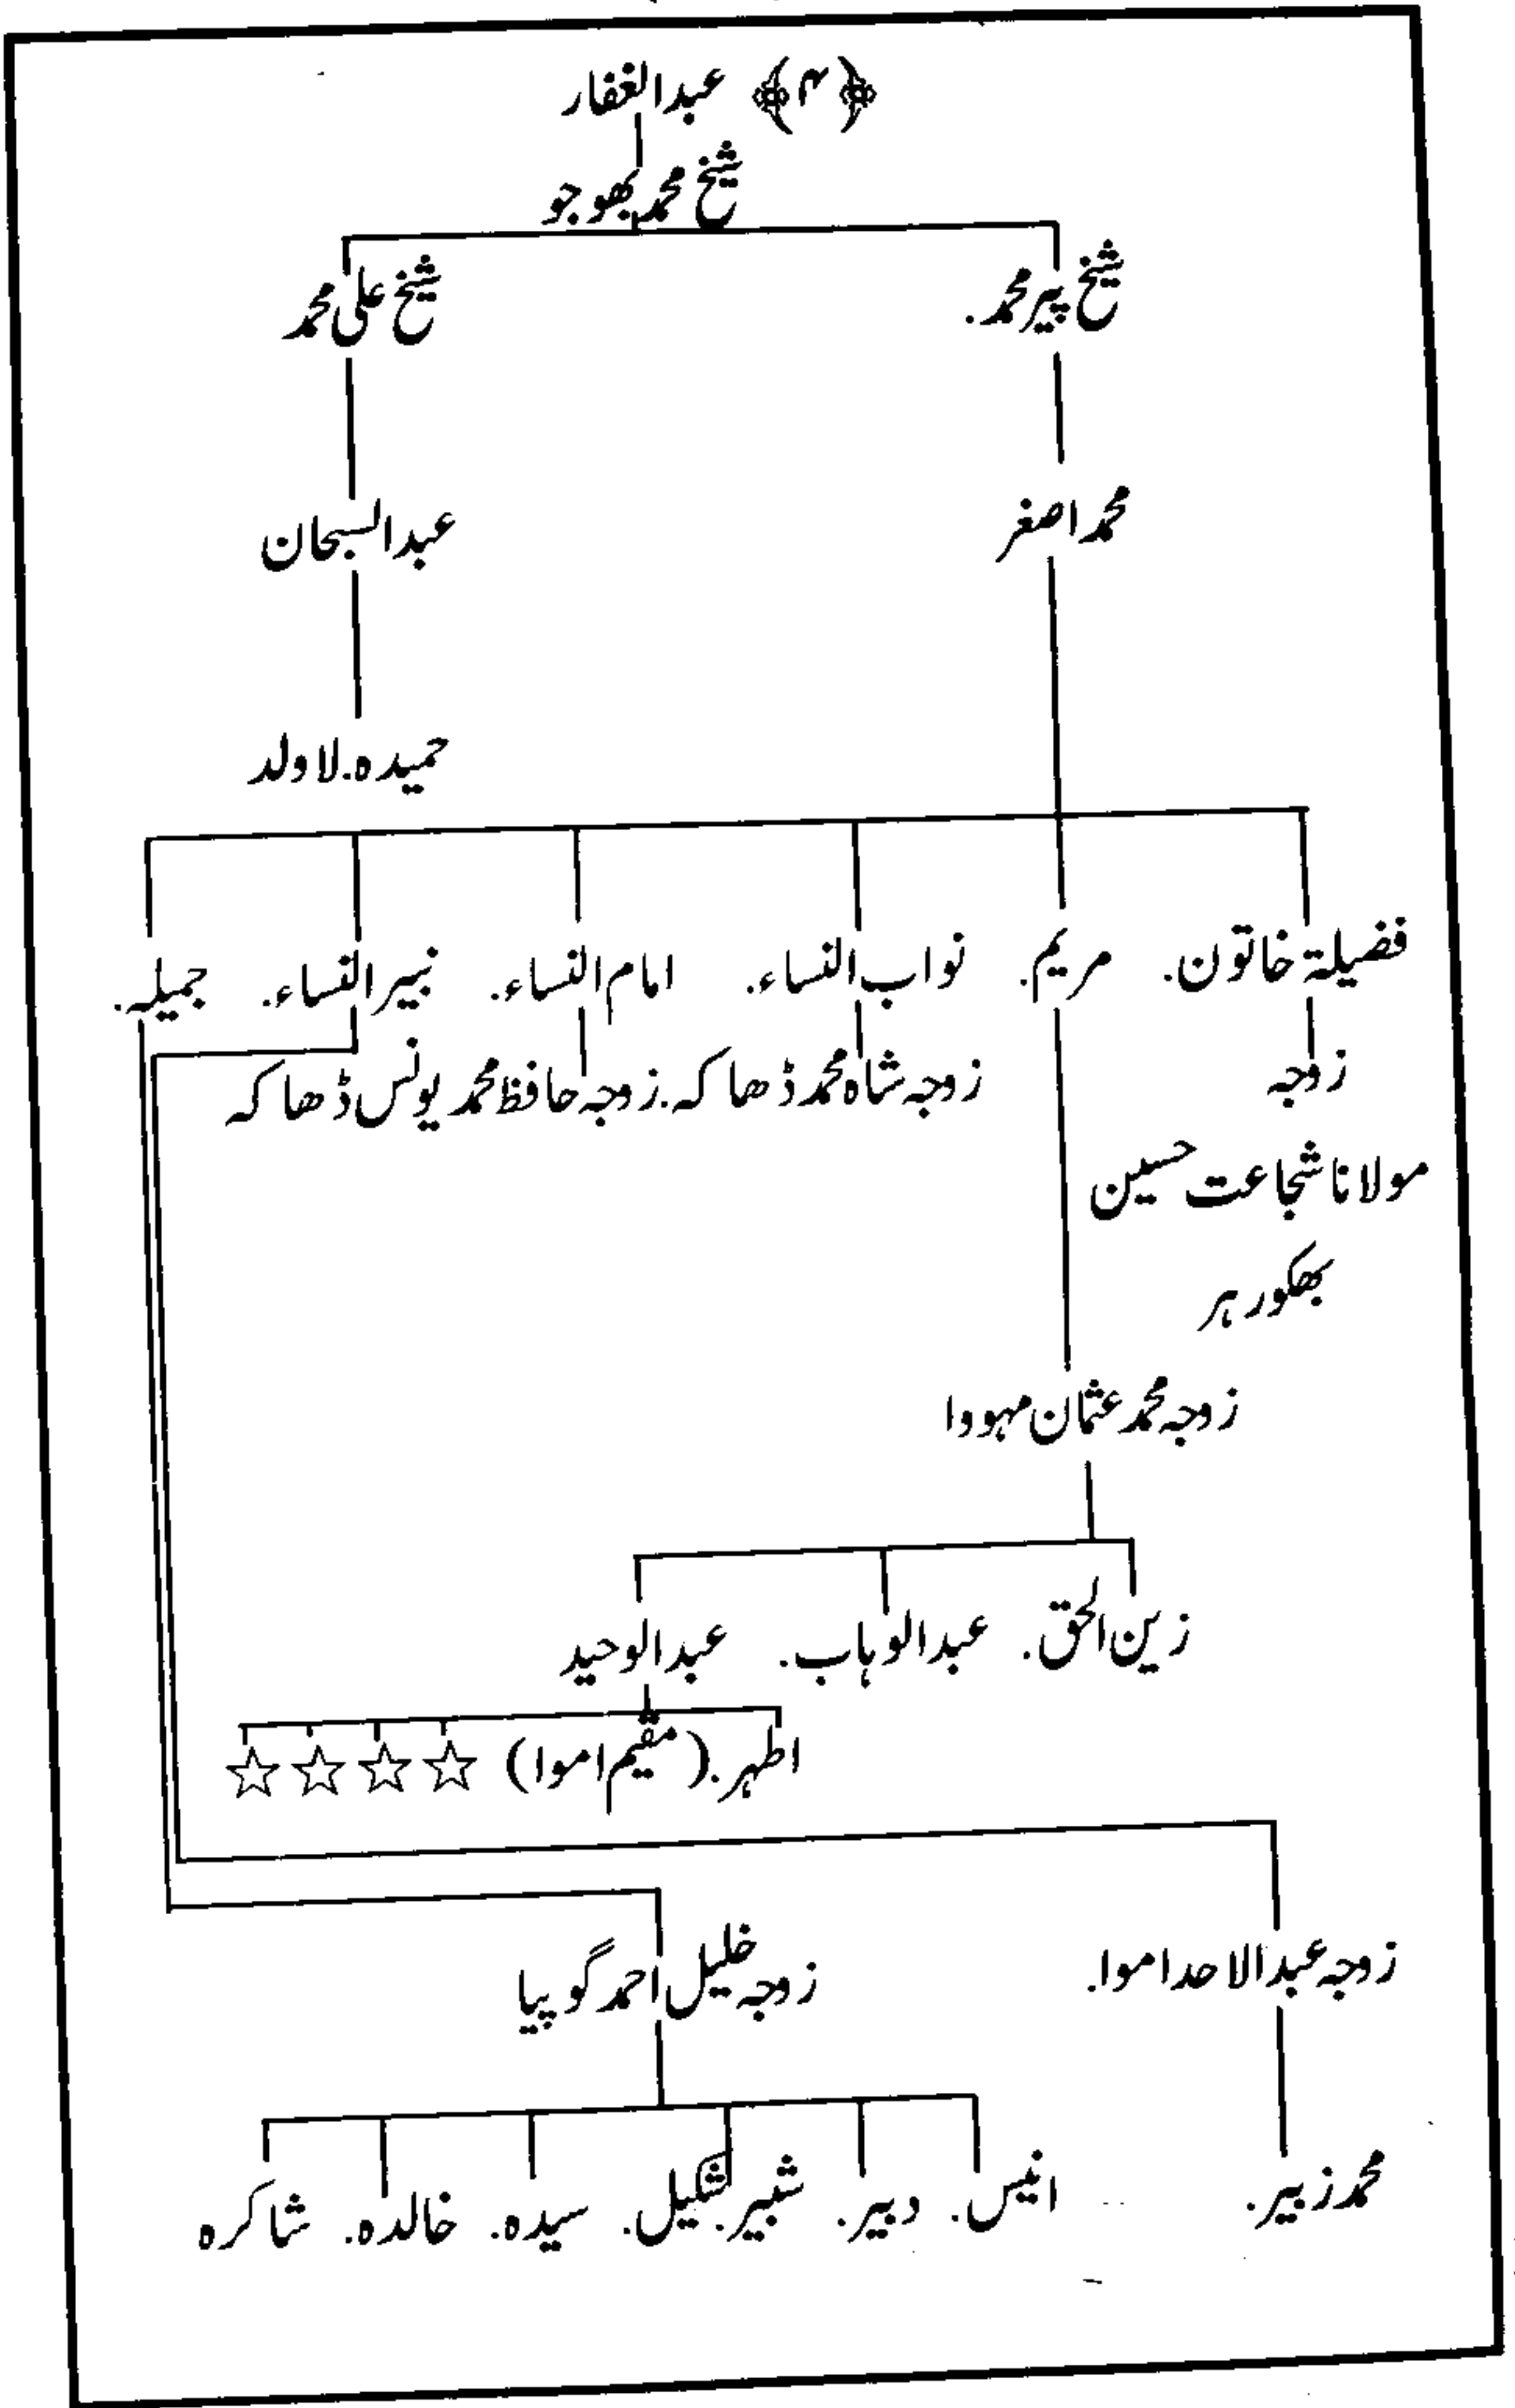 ﴿۴﴾ عبدالغفار
شیخ محمد بھوجو
شیخ پیر محمد. شیخ علی محمد
محمد اصغر عبدالسبحان
حمیدہ.لاولد
فضیلۃ خاتون. مریم. نواب النساء. امام النساء. نبیر النساء. جمیلہ.
زوجہ زوجہ شاہ محمد ڈھاکہ.زوجہ حافظ محمد یونس ڈھاکہ
مولانا شجاعت حسین
بھکورہر
زوجہ محمد عثمان مہووا
زین الحق. عبدالوہاب. عبدالوحید
اطہر.(مقیم اموا) ☆ ☆ ☆ ☆
زوجہ عبدالاحد اموا. زوجہ خلیل احمد گوپیا
محمد زبیر. انیس. دبیر. شبیر.شکیل. سیدہ. خالدہ. شاکرہ